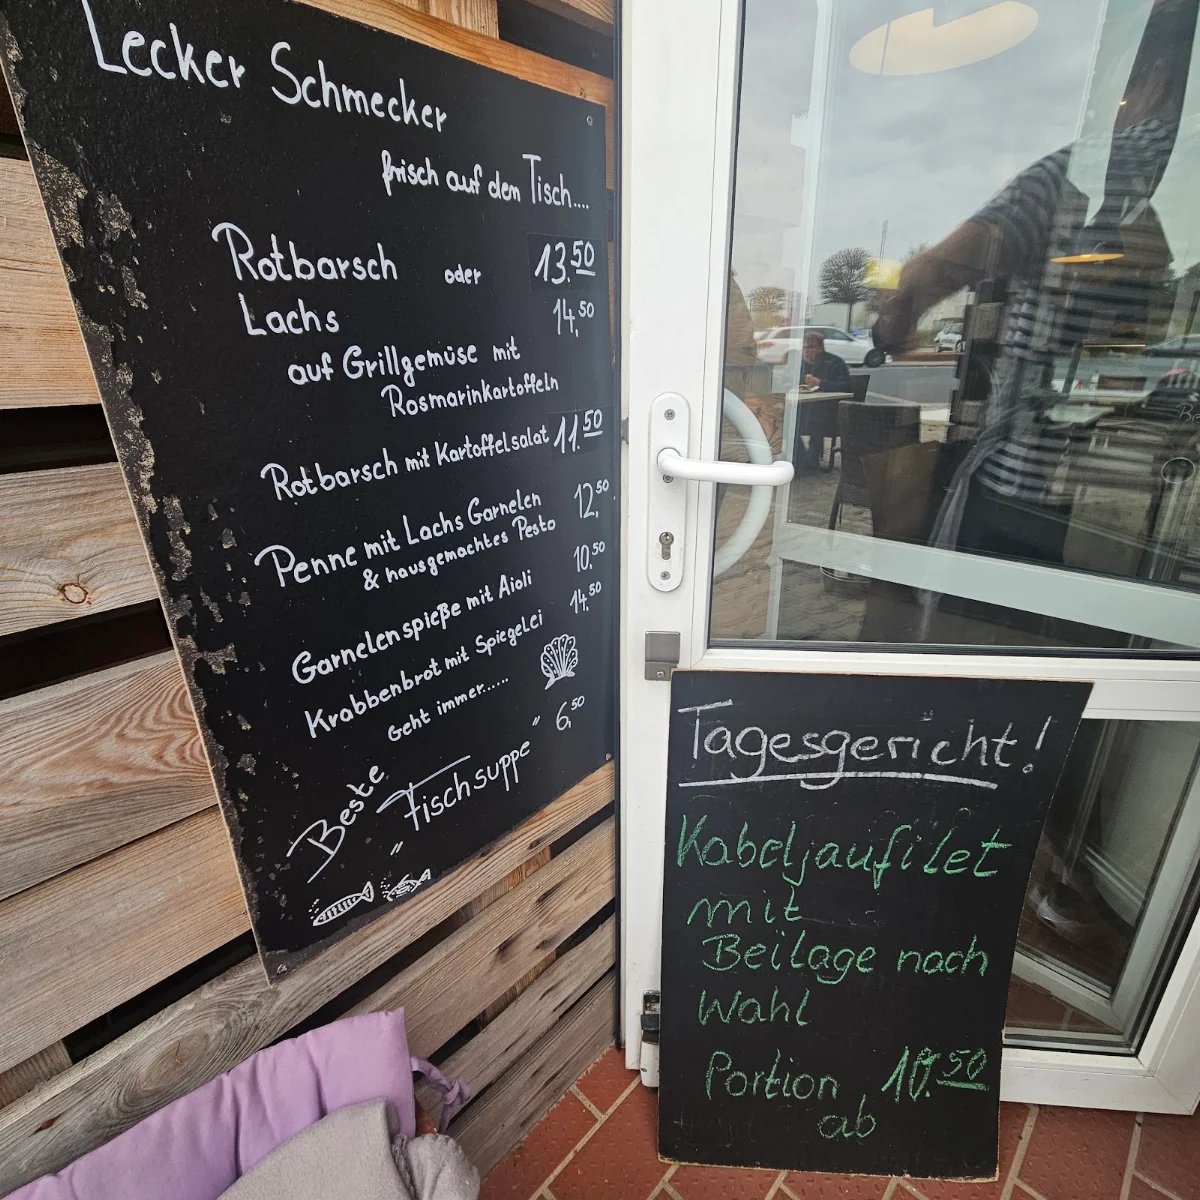 Lecker Schmecker
frisch auf dem Tisch....
Rotbarsch oder 13.50
Lachs 14,50
auf Grillgemüse mit
Rosmarinkartoffeln
Rotbarsch mit Kartoffelsalat 11.50
Penne mit Lachs Garnelen 12,50
& hausgemachtes Pesto
Garnelenspieße mit Aioli 10,50
Krabbenbrot mit Spiegelei 14,50
Geht immer......
Beste
"Fischsuppe" 6,50
Tagesgericht!
Kabeljaufilet
mit
Beilage nach
Wahl
Portion 10.50
ab